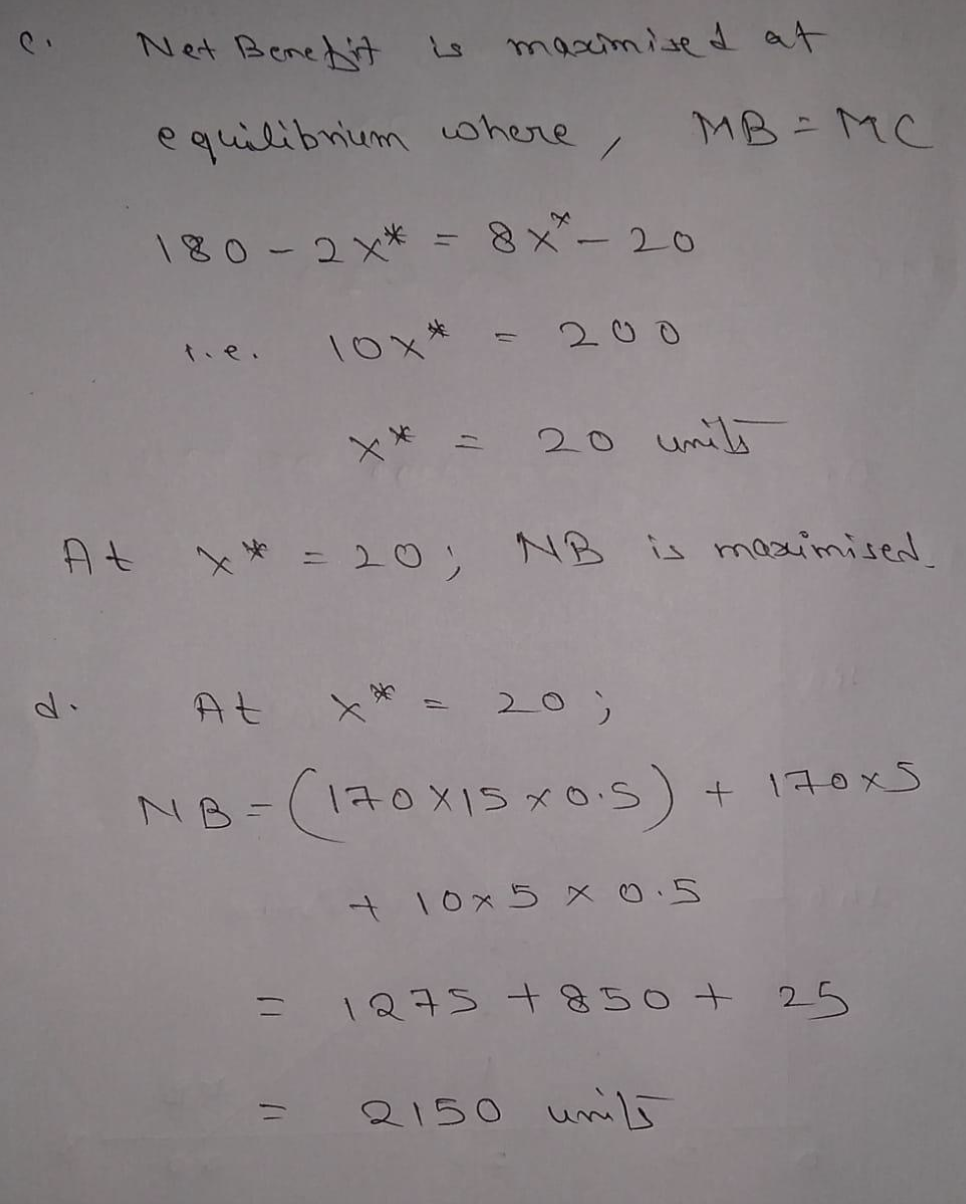 c. Net Benefit is maximised at
equilibrium where, MB = MC
180 - 2x* = 8x* - 20
i.e. 10x* = 200
x* = 20 units
At x* = 20; NB is maximised.
d. At x* = 20;
NB = (170 x 15 x 0.5) + 170 x 5
+ 10 x 5 x 0.5
= 1275 + 850 + 25
= 2150 units